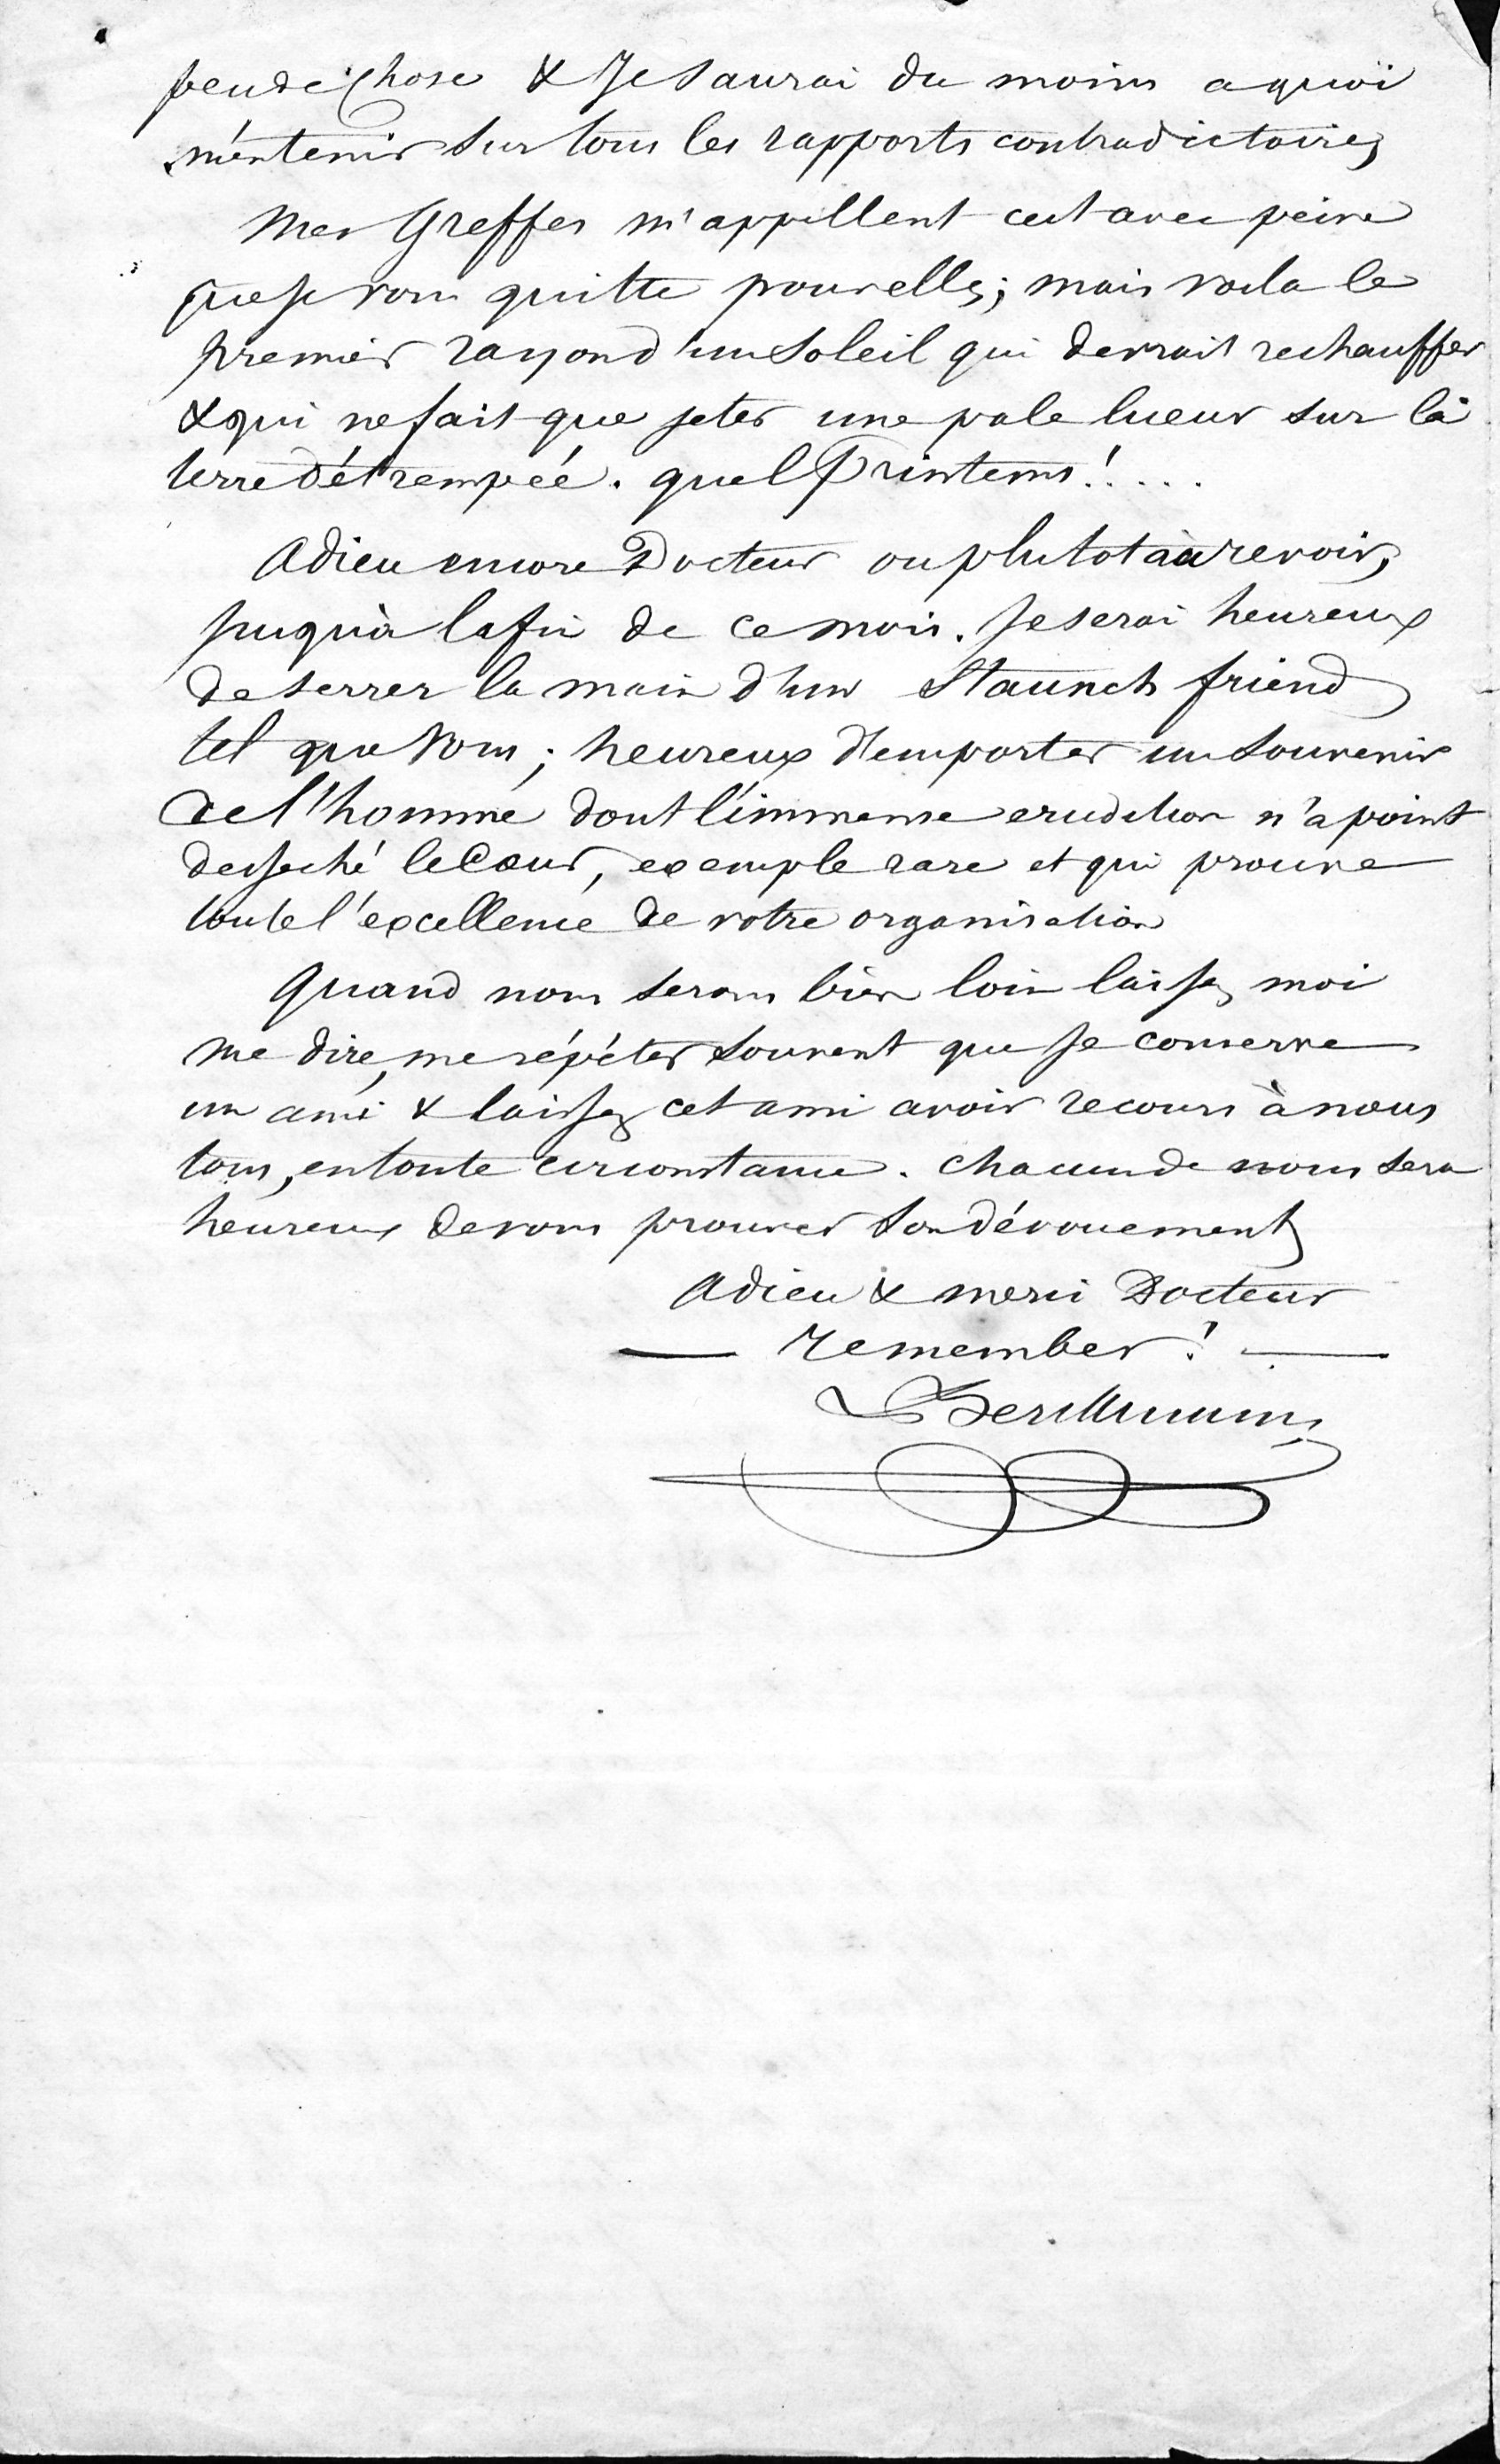 peu de chose & Je saurai du moins a quoi
m'en tenir sur tous les rapports contradictoires
Mes Greffes m'appellent cest avec peine
que je vous quitte pour elles; mais voila le
premier rayon d'un soleil qui devrait rechauffer
& qui ne fait que jeter une pale lueur sur la
terre détrempéé. quel Printems!.....
Adieu encore Docteur ou plutot à revoir,
jusqu'à la fin de ce mois. Je serai heureux
de serrer la main d'un Staunch friend
tel que Vous; heureux d'emporter un souvenir
de l'homme dont l'immense erudition n'a point
desseché le Cœur, exemple rare et qui prouve
toute l'excellence de votre organisation
Quand nous serons bien loin laissez moi
me dire, me répéter souvent que Je conserve
un ami & laissez cet ami avoir recours à nous
tous, en toute circonstance. Chacun de nous sera
heureux de vous prouver son dévouement
Adieu & merci Docteur
— remember! —